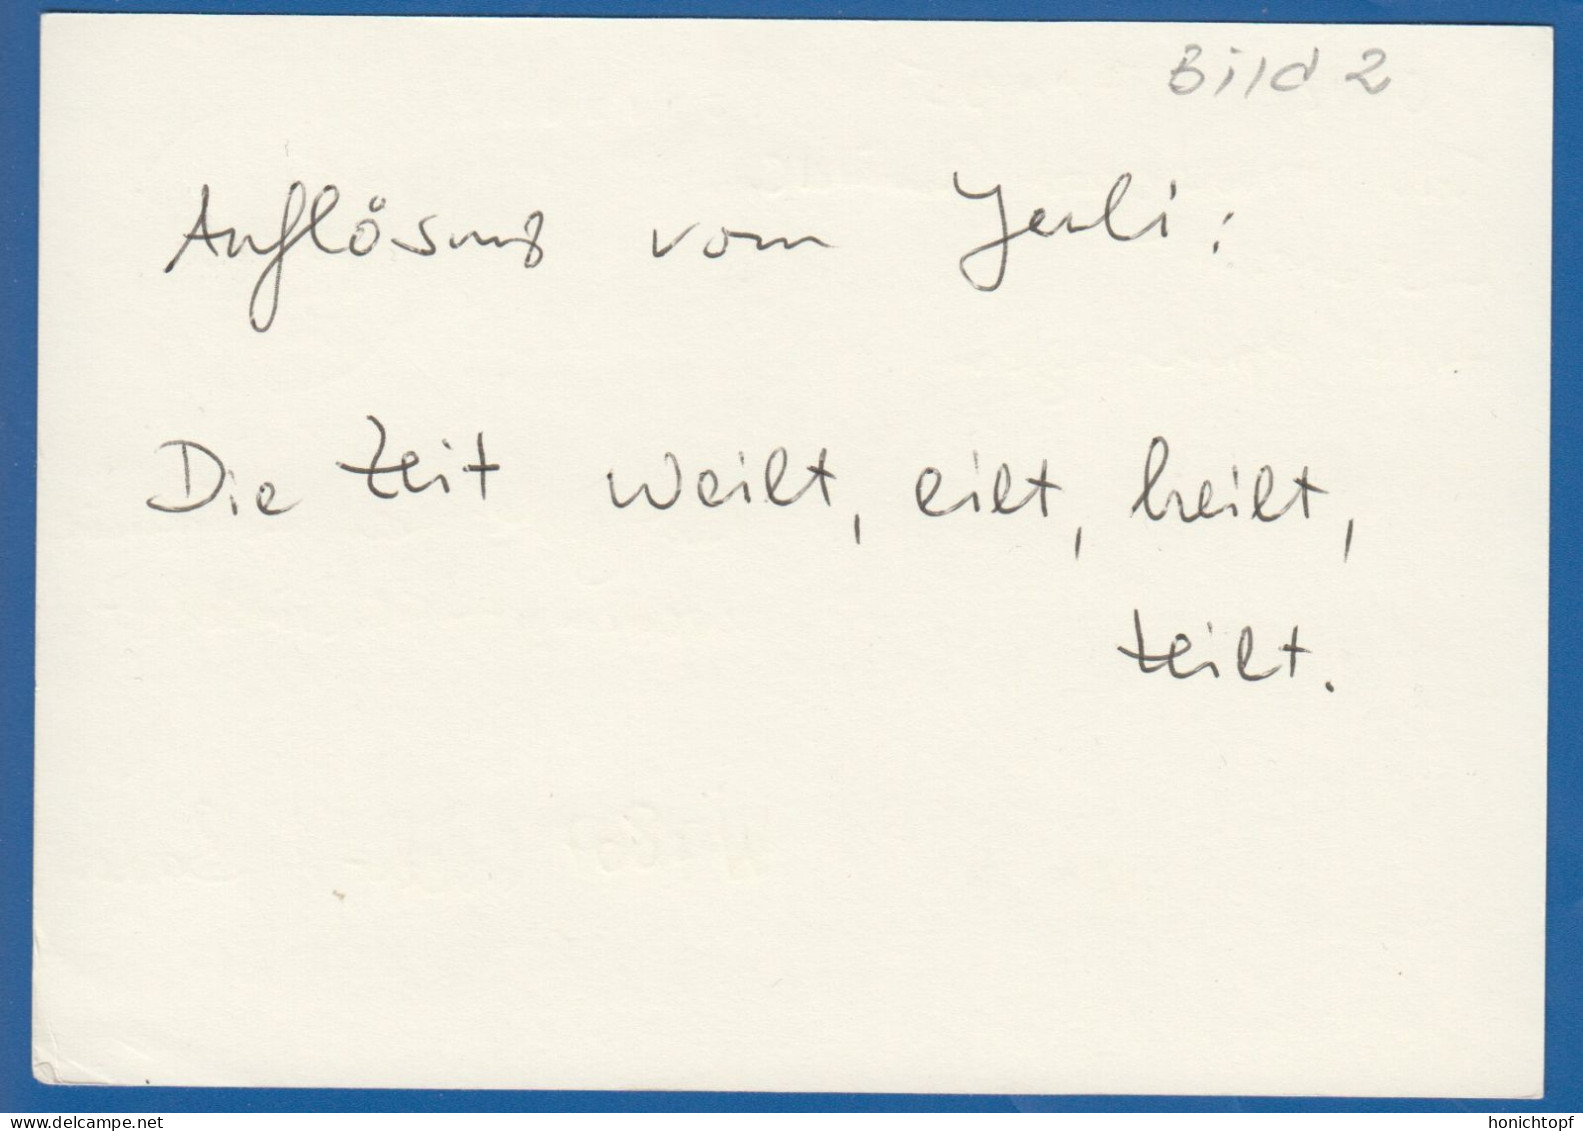 Bild 2
Auflösung vom Juli:
Die Zeit weilt, eilt, heilt,
teilt.
www.delcampe.net
honichtopf